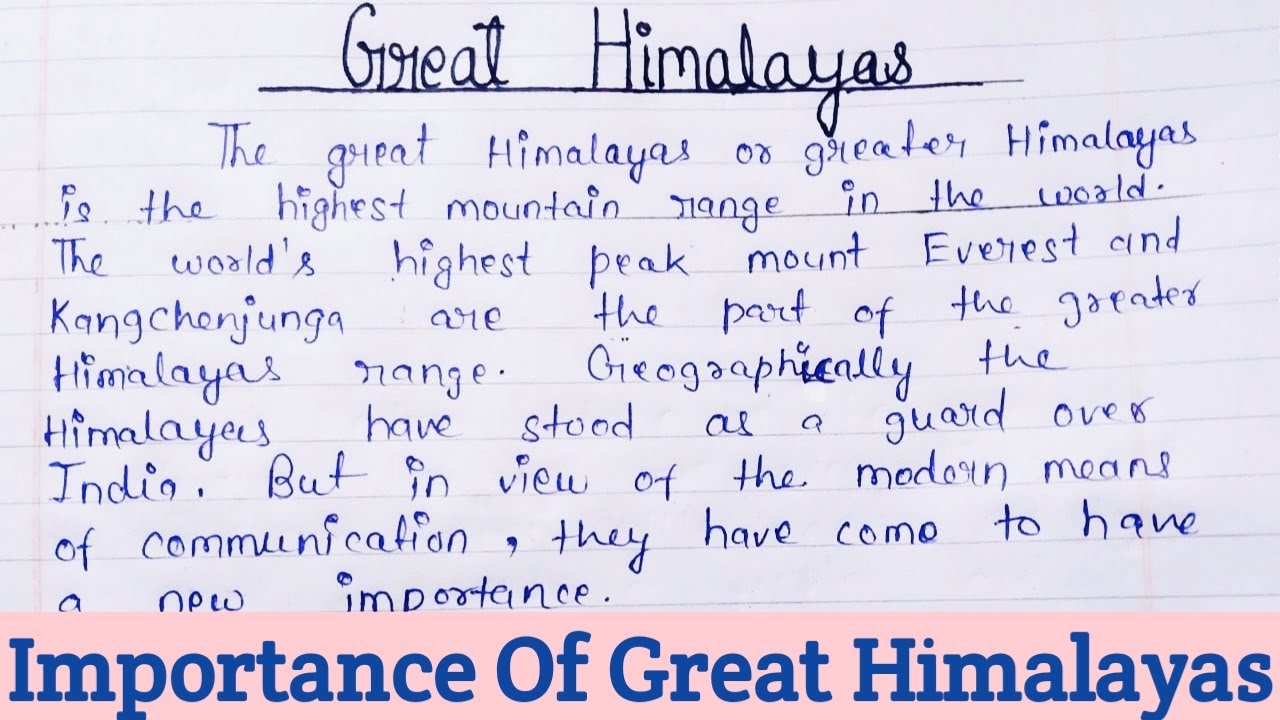 Great Himalayas
The great Himalayas or greater Himalayas
is the highest mountain range in the world.
The world's highest peak mount Everest and
Kangchenjunga are the part of the greater
Himalayas range. Geographically the
Himalayas have stood as a guard over
India. But in view of the modern means
of communication, they have come to have
a new importance.
Importance Of Great Himalayas